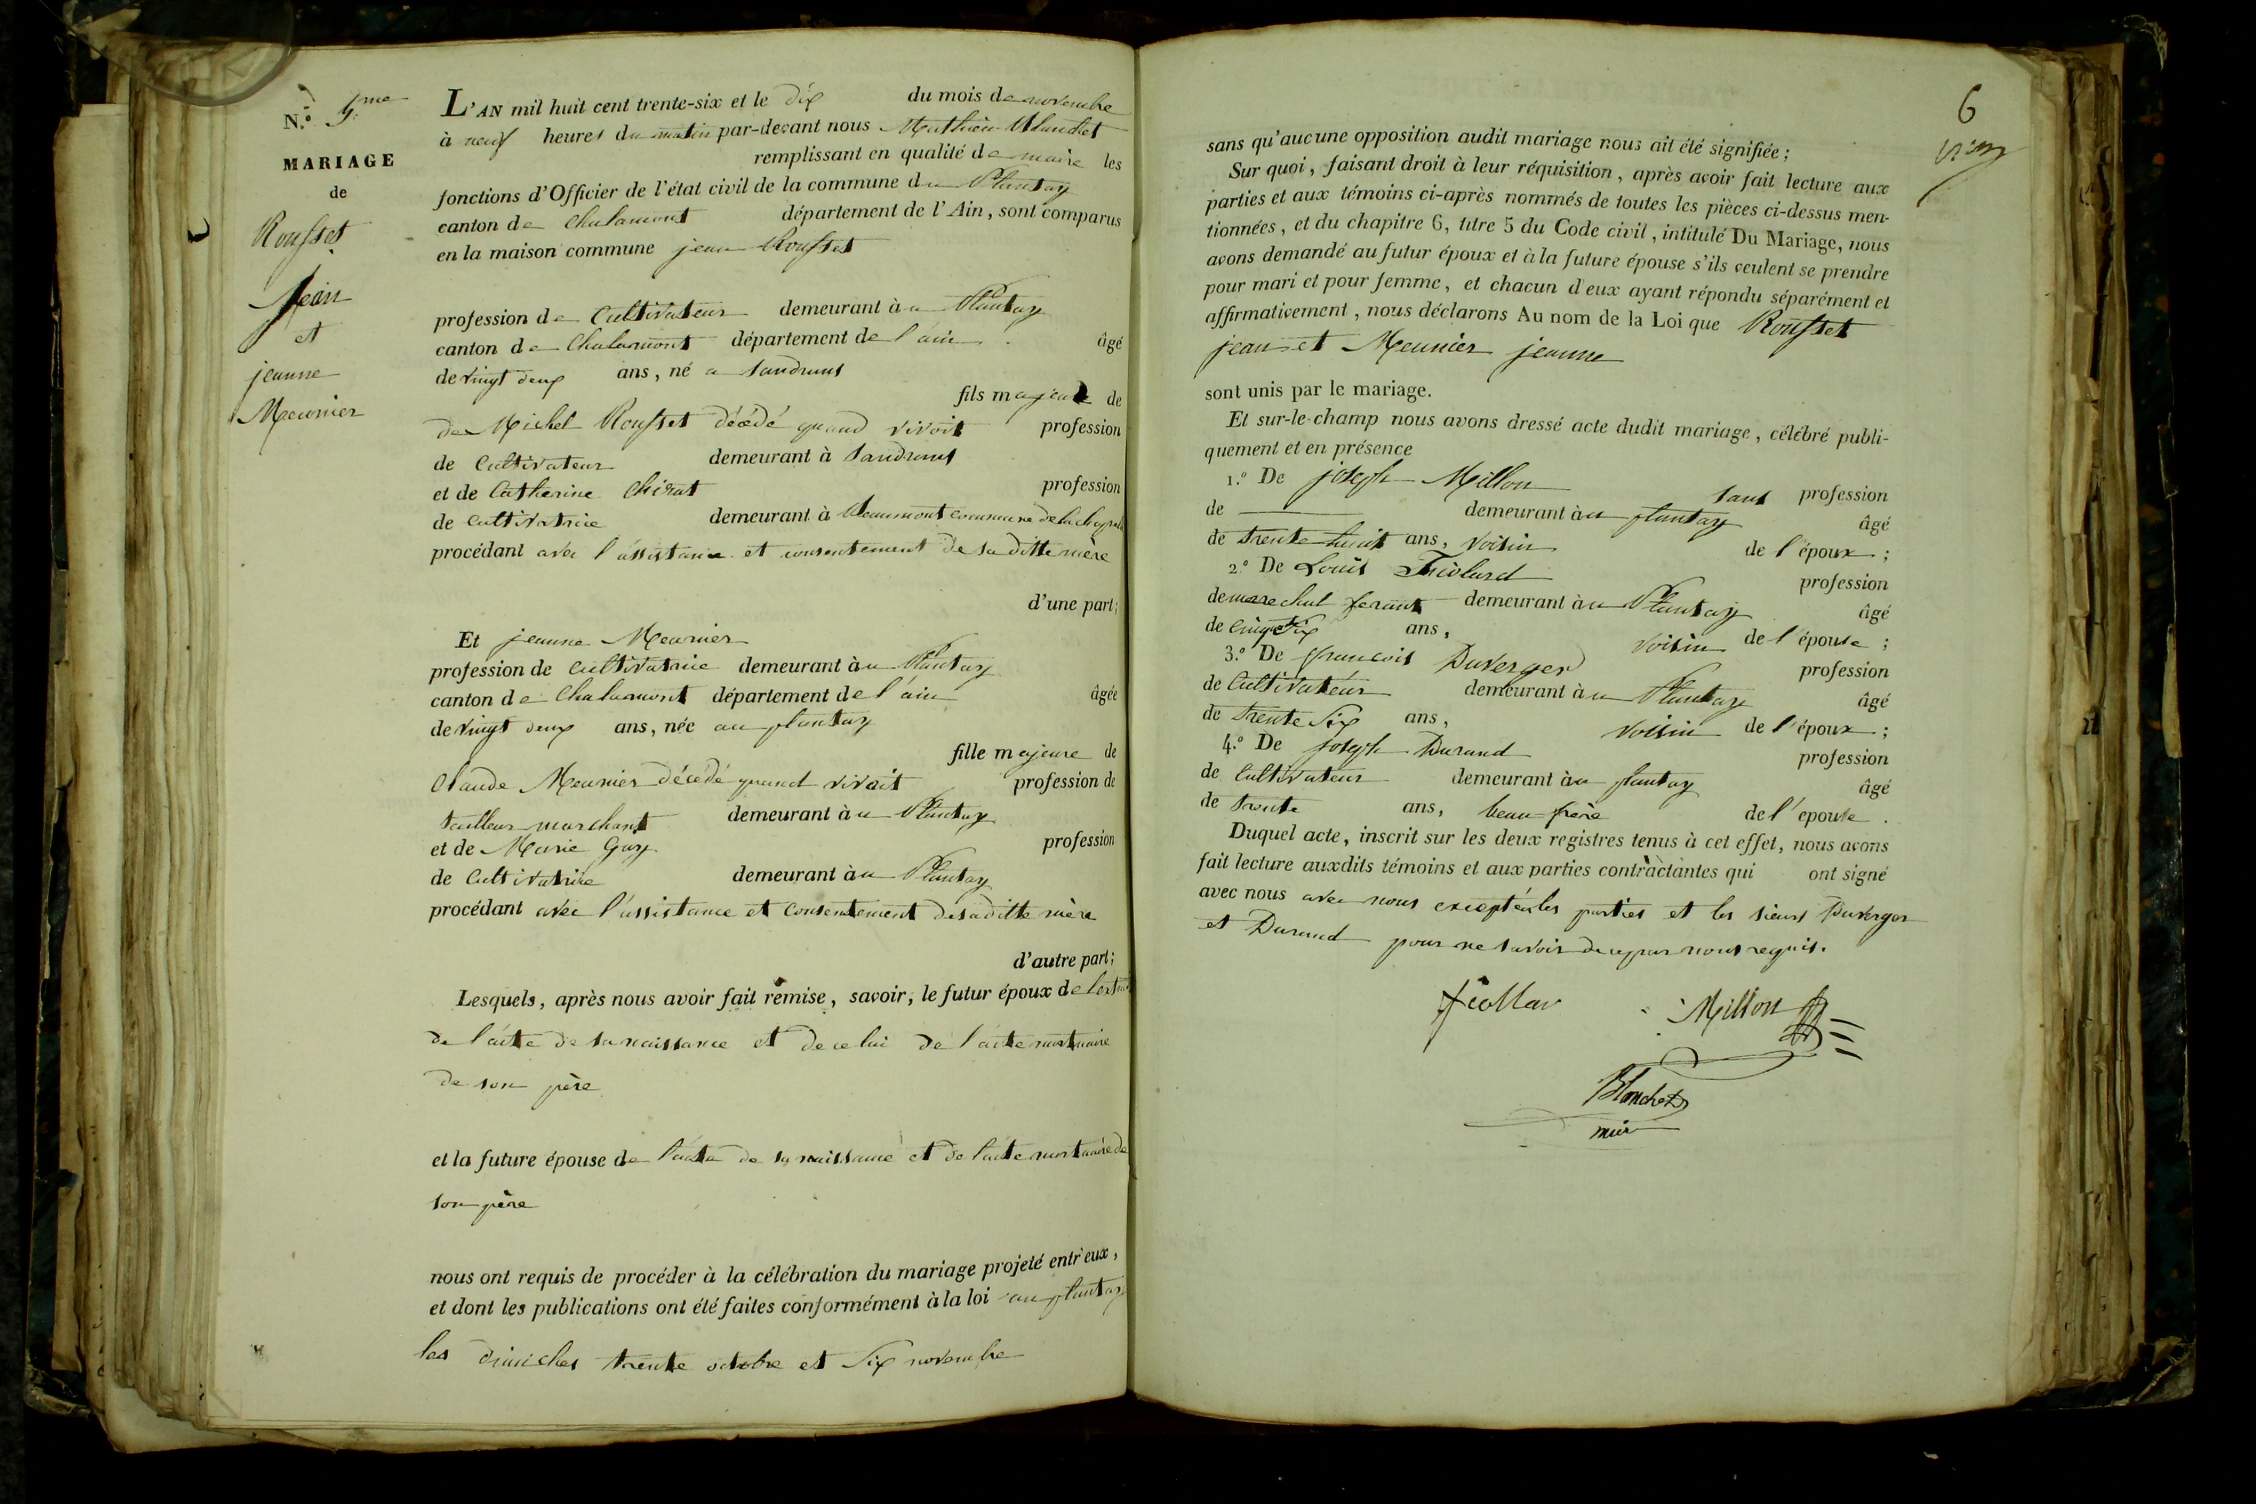 N.o 5me
MARIAGE
de
Rousset
Jean
et
jeanne
Meunier
L'AN mil huit cent trente-six et le dix du mois de novembre
à neuf heures du matin par-devant nous Mathieu Blanchet
remplissant en qualité de maire les
fonctions d'Officier de l'état civil de la commune du Plantay
canton de Chalamont département de l'Ain, sont comparus
en la maison commune jean Rousset
profession de Cultivateur demeurant à u Plantay
canton de Chalamont département de l'ain âgé
de vingt deux ans, né a Sandrans
fils majeur de
de Michel Rousset décédé quand vivoit profession
de Cultivateur demeurant à Sandrans
et de Catherine Chirat profession
de cultivatrice demeurant à Beaumont commune de la
procédant avec l'assistance et consentement de sa ditte mère
d'une part;
Et jeanne Meunier
profession de cultivatrice demeurant à u Plantay
canton de Chalamont département de l'ain âgée
de vingt deux ans, née au plantay
fille majeure de
Claude Meunier décédé quand vivait profession de
tailleur marchant demeurant à u Plantay
et de Marie Guy profession
de Cultivatrice demeurant à u Plantay
procédant avec l'assistance et consentement de sa ditte mère
d'autre part;
Lesquels, après nous avoir fait remise, savoir, le futur époux de
de l'acte de sa naissance et de celui de l'acte mortuaire
de son père
et la future épouse de l'acte de sa naissance et de l'acte mortuaire de
son père
nous ont requis de procéder à la célébration du mariage projeté entr'eux,
et dont les publications ont été faites conformément à la loi au plantay
les dimiches trente octobre et six novembre
6
sans qu'aucune opposition audit mariage nous ait été signifiée;
Sur quoi, faisant droit à leur réquisition, après avoir fait lecture aux
parties et aux témoins ci-après nommés de toutes les pièces ci-dessus men-
tionnées, et du chapitre 6, titre 5 du Code civil, intitulé Du Mariage, nous
avons demandé au futur époux et à la future épouse s'ils veulent se prendre
pour mari et pour femme, et chacun d'eux ayant répondu séparément et
affirmativement, nous déclarons Au nom de la Loi que Rousset
jean et Meunier jeanne
sont unis par le mariage.
Et sur-le-champ nous avons dressé acte dudit mariage, célébré publi-
quement et en présence
1.o De joseph Millon sans profession
de demeurant à u plantay âgé
de trente huit ans, voisin de l'époux;
2.o De Louis profession
de marechal ferant demeurant à u Plantay âgé
de ans, voisin de l'épouse;
3.o De françois Duverger profession
de Cultivateur demeurant à u Plantay âgé
de trente six ans, voisin de l'époux;
4.o De joseph Durand profession
de Cultivateur demeurant à u plantay âgé
de trente ans, beau-frère de l'épouse.
Duquel acte, inscrit sur les deux registres tenus à cet effet, nous avons
fait lecture auxdits témoins et aux parties contractantes qui ont signé
avec nous avec nous exceptés les parties et les sieurs Duverger
et Durand pour ne savoir de ce par nous requis.
Millon
Blanchet